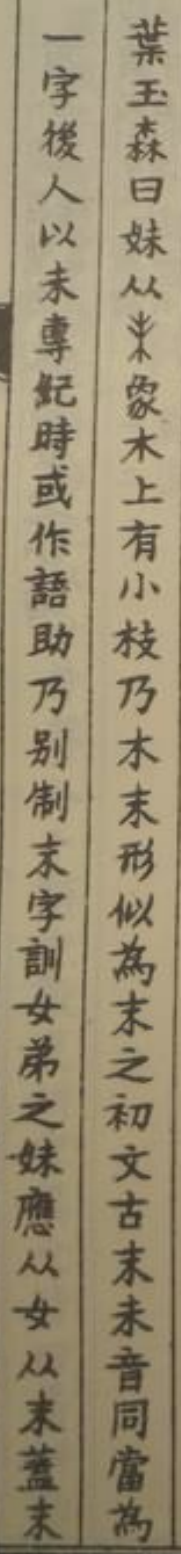 葉玉森曰妹从𣎵象木上有小枝乃木末形似為末之初文古末未音同當為
一字後人以未專紀時或作語助乃别制末字訓女弟之妹應从女从末蓋末